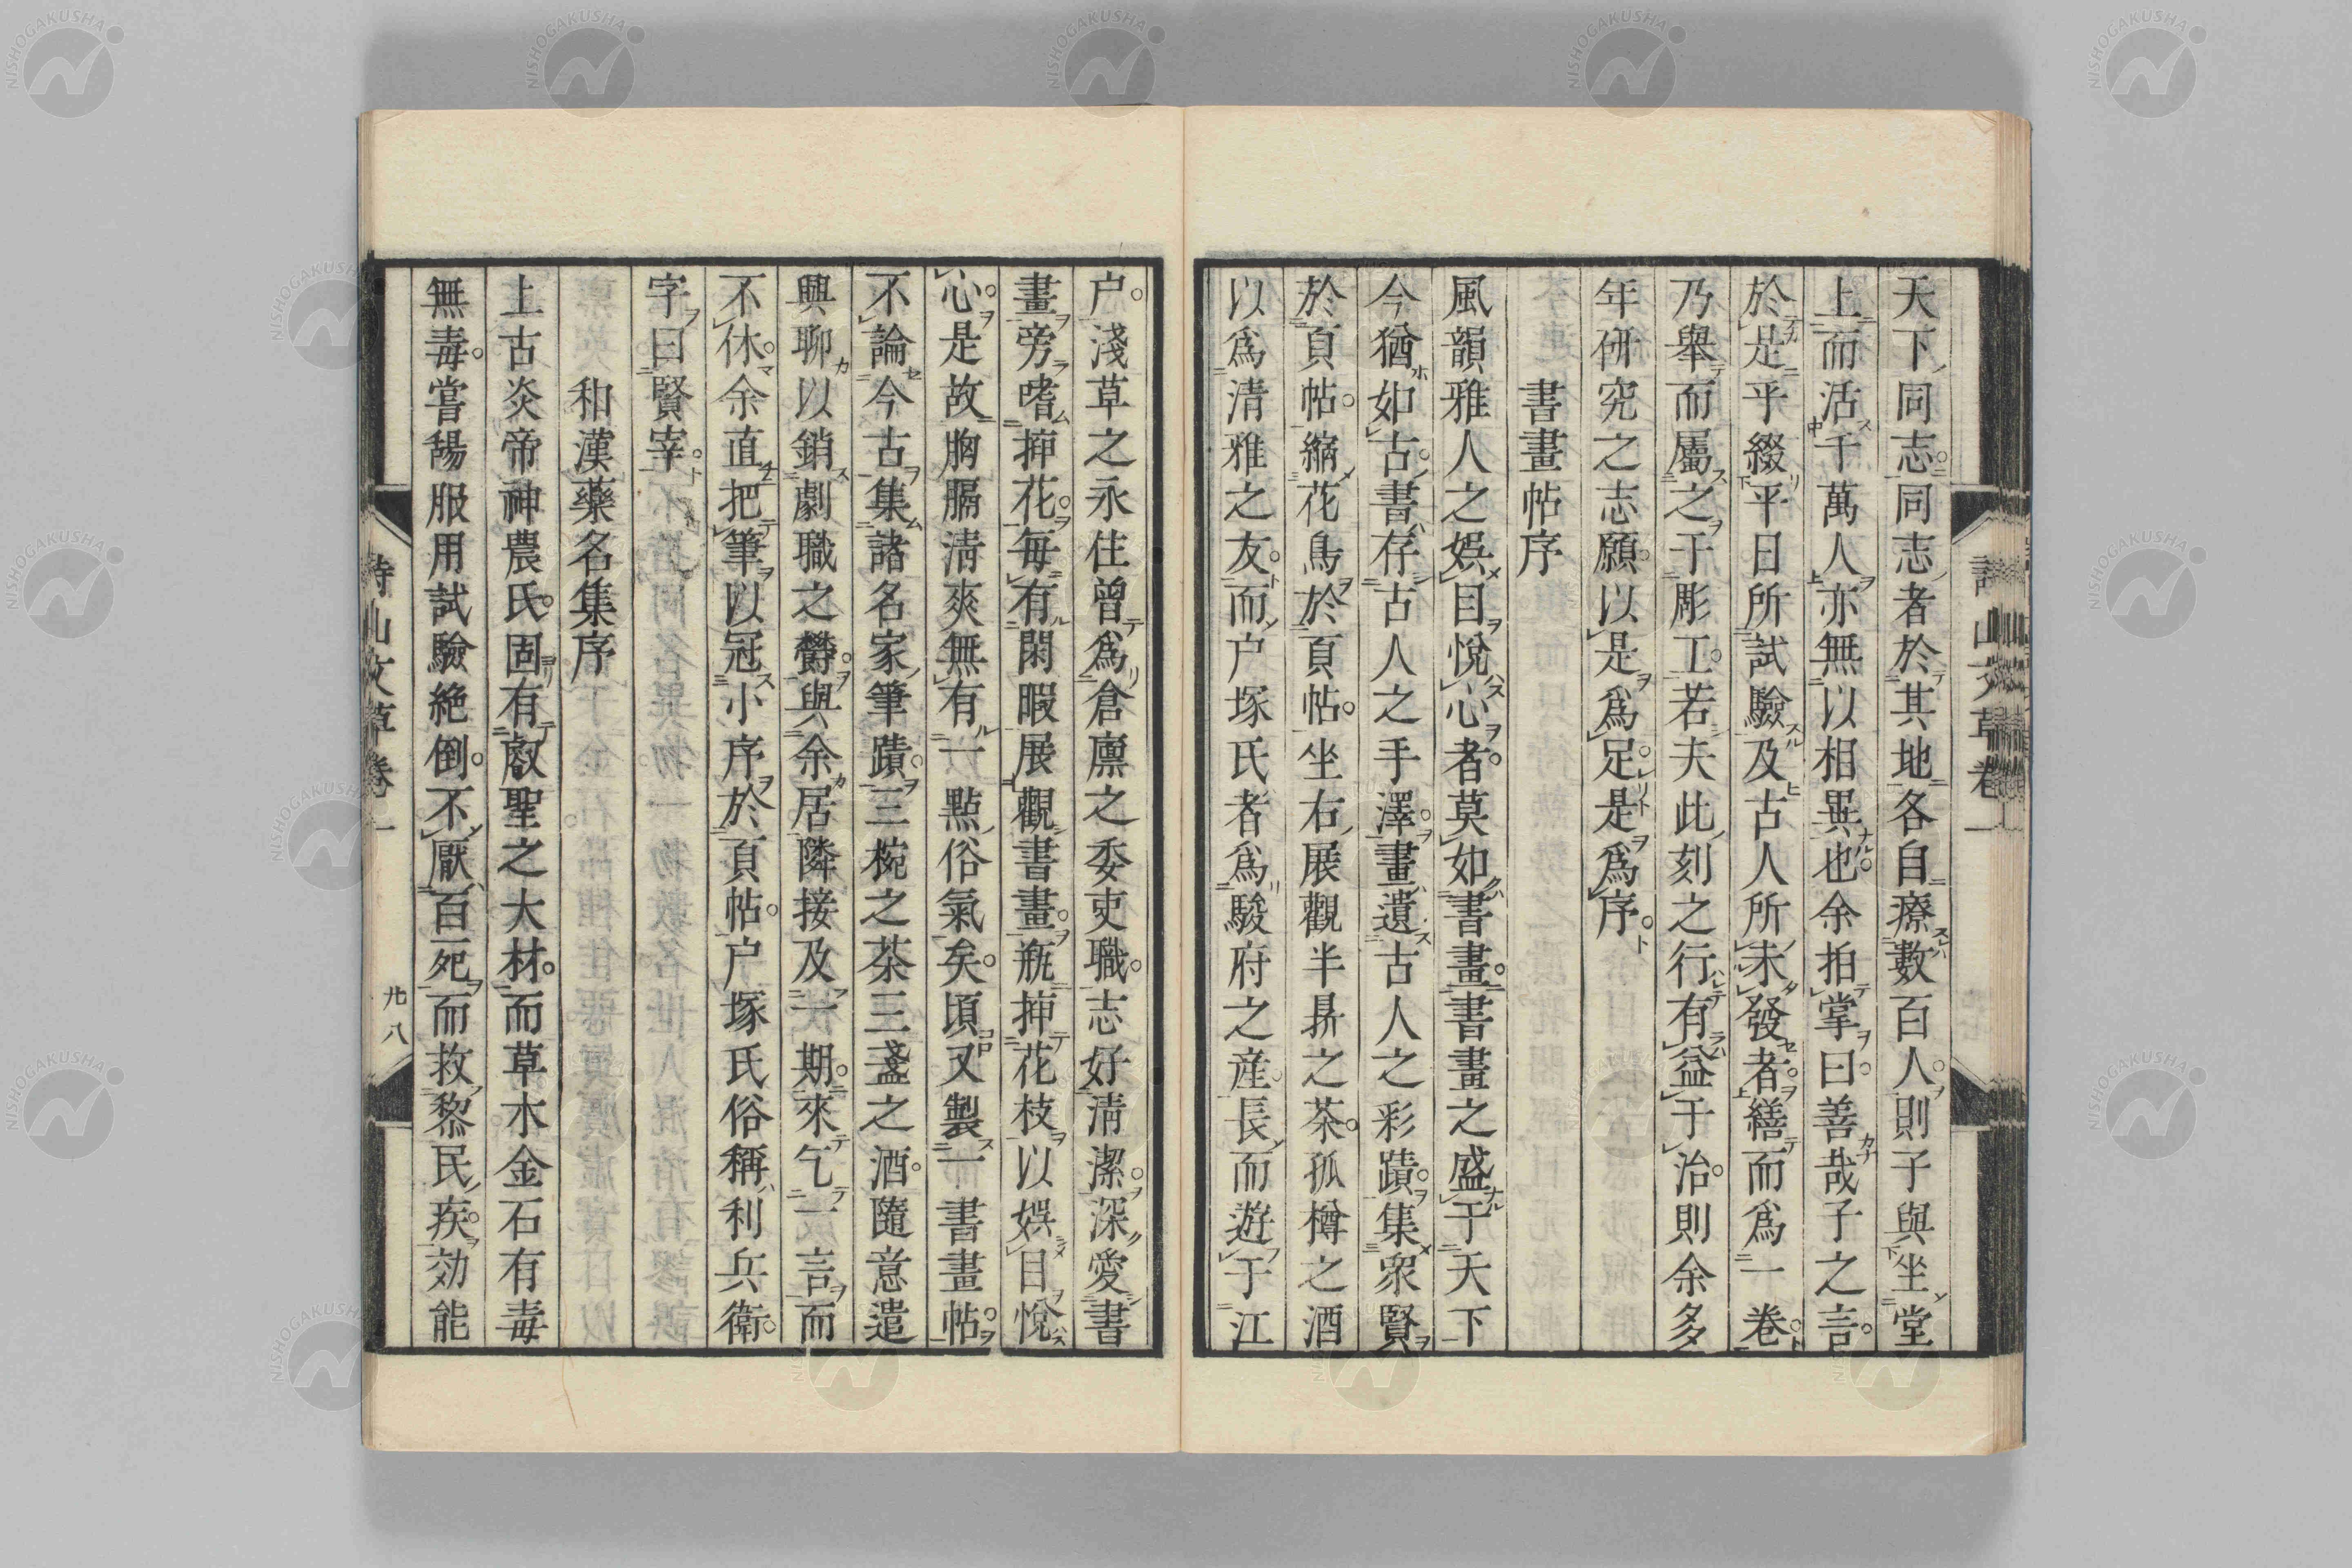 天下同志同志者於其地各自療數百人則子與坐堂
上而活千萬人亦無以相異也余拍掌曰善哉子之言
於是乎綴平日所試驗及古人所未發者繕而爲一卷
乃舉而屬之于彫工若夫此刻之行有益于治則余多
年研究之志願以是爲足是爲序
書畫帖序
風韻雅人之娯目悅心者莫如書畫書畫之盛于天下
今猶如古書存古人之手澤畫遺古人之彩蹟集衆賢
於頁帖縮花鳥於頁帖坐右展觀半鼎之茶孤樽之酒
以爲清雅之友而戸塚氏者爲駿府之産長而遊于江
户淺草之永住曾爲倉廪之委吏職志好清潔深愛書
畫旁嗜挿花每有閑暇展觀書畫瓶挿花枝以娯目悅
心是故胸膈清爽無有一點俗氣矣頃又製一書畫帖
不論今古集諸名家筆蹟三椀之茶三盞之酒隨意遣
興聊以銷劇職之欝與余居隣接及一期來乞一言而
不休余直把筆以冠小序於頁帖户塚氏俗稱利兵衛
字曰賢宰
和漢藥名集序
上古炎帝神農氏固有叡聖之大材而草木金石有毒
無毒嘗舐服用試驗絶倒不厭百死而救黎民疾効能
詩山文草卷一
廿八
NISHOGAKUSHA